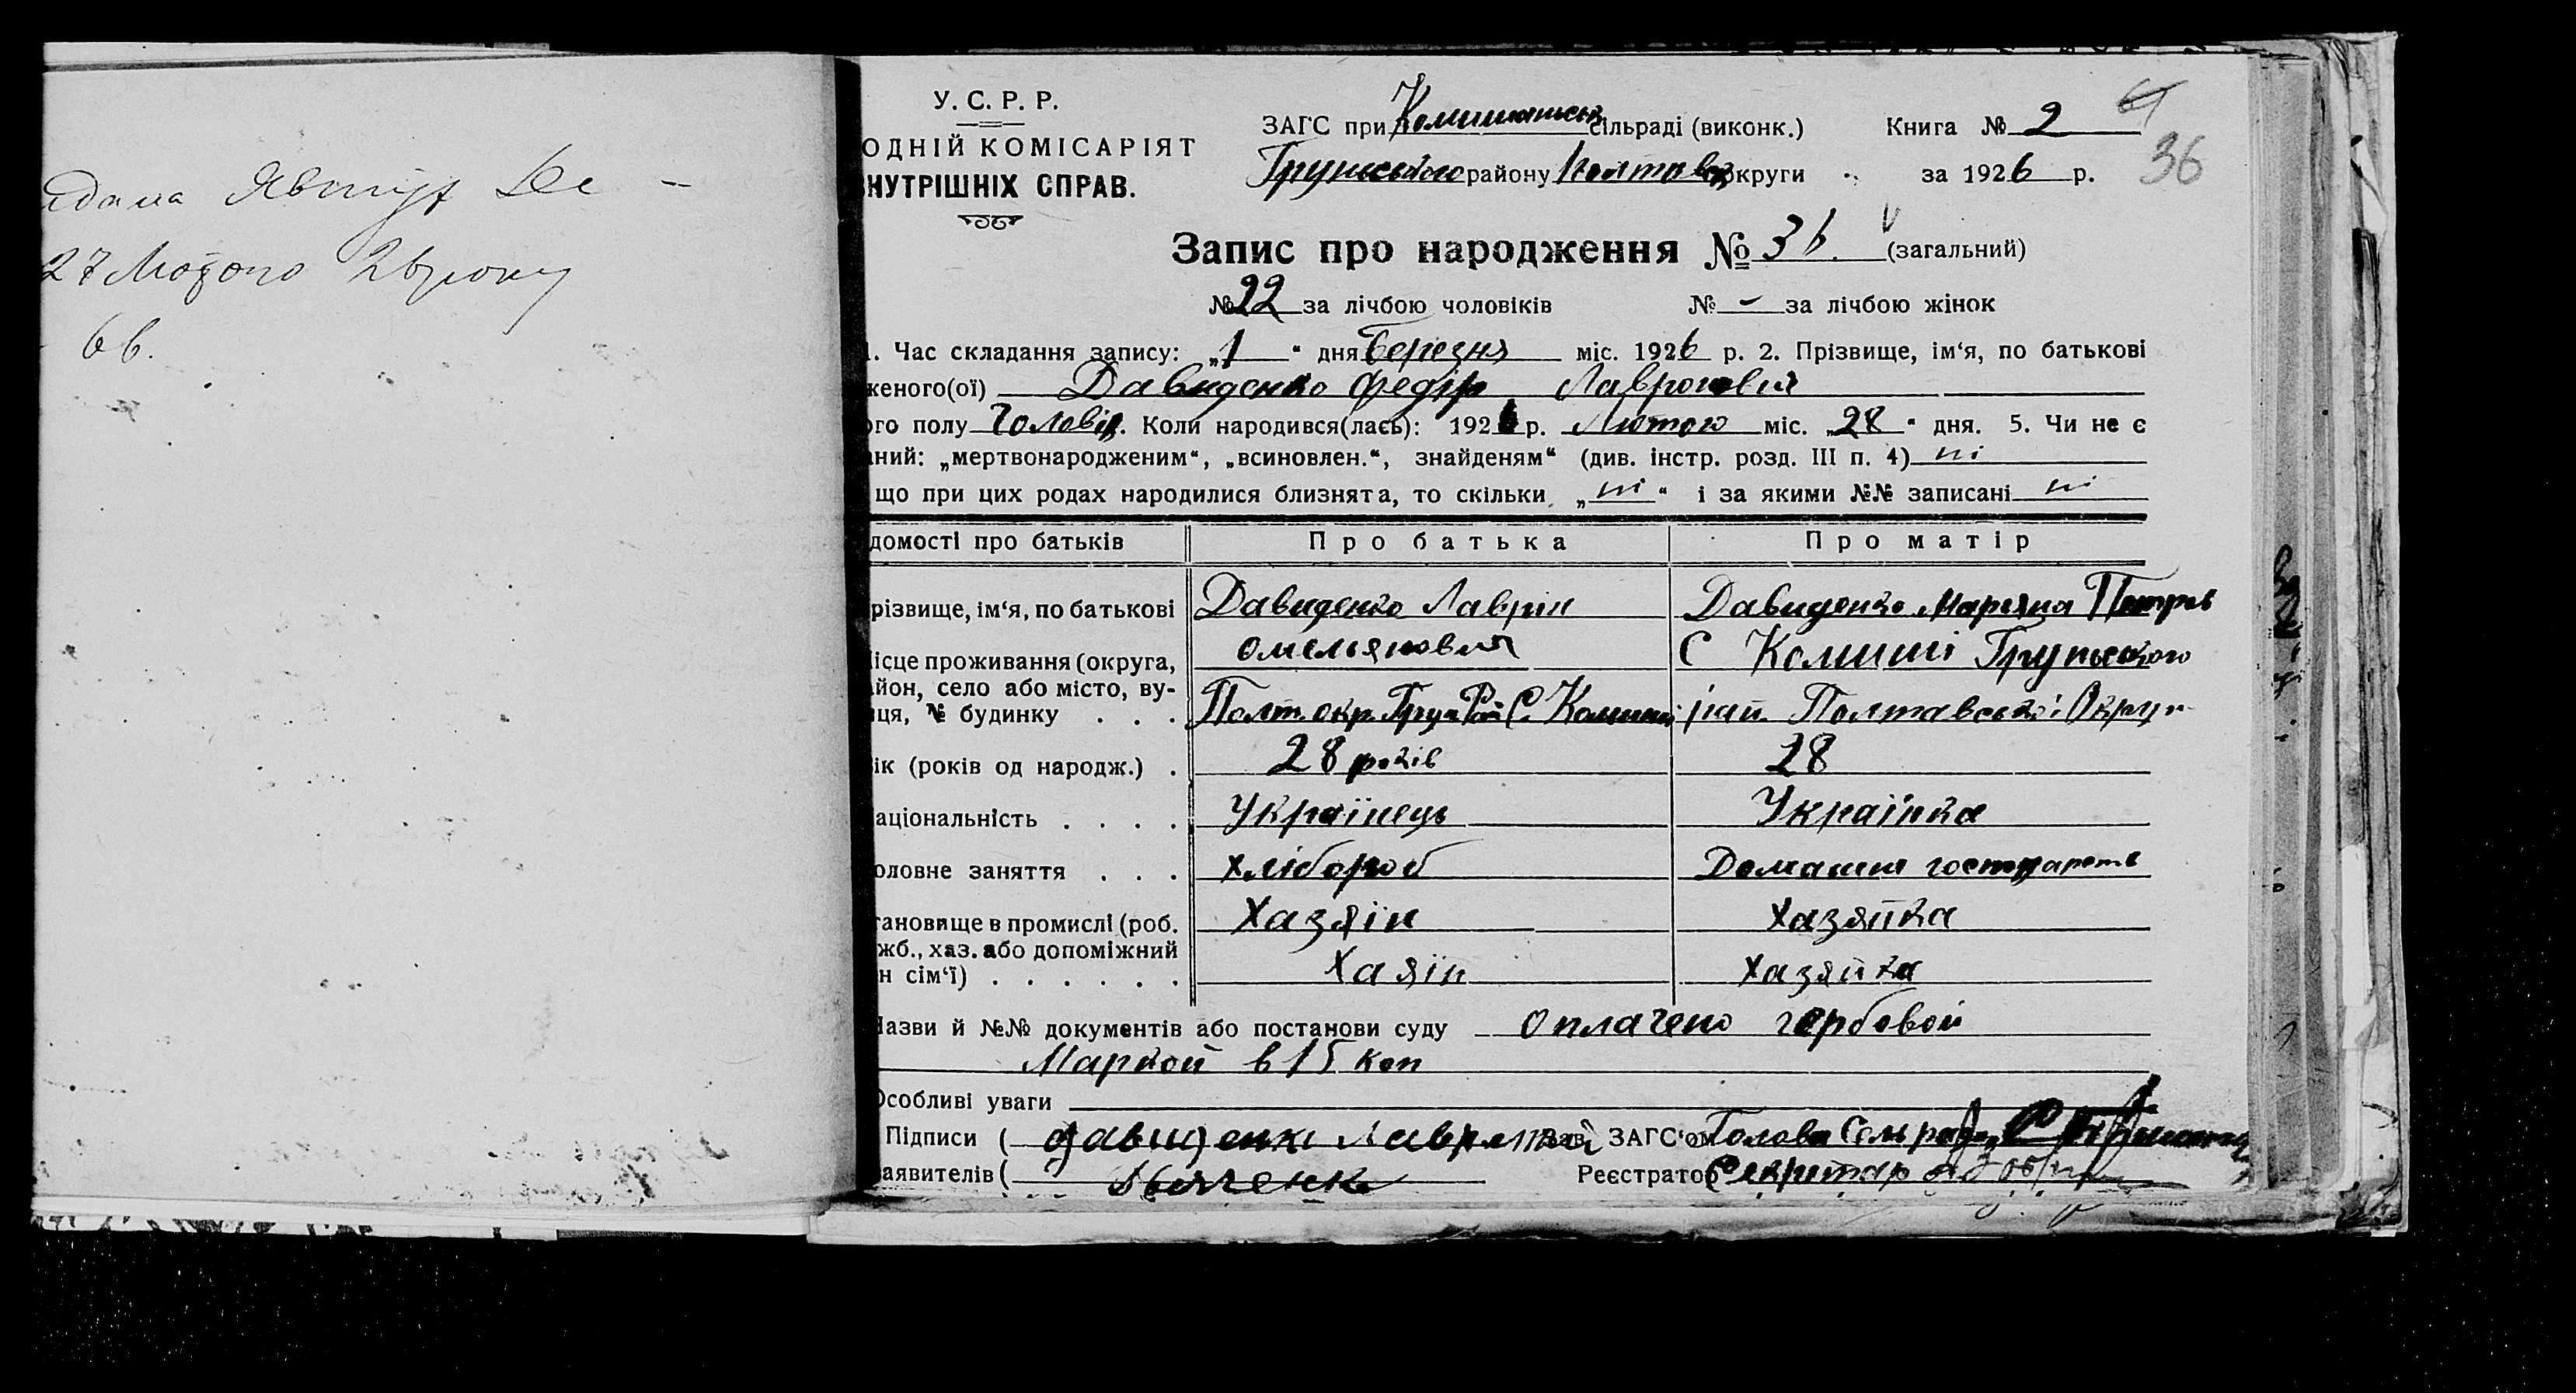 Явтух
27 Лютого 26 року
6 в.
У. С. Р. Р.
ОДНІЙ КОМІСАРІЯТ
НУТРІШНІХ СПРАВ.
ЗАГС при Комишанськ сільраді (виконк.) Книга № 2
Грунського району Полтавс округи за 1926 р.
36
Запис про народження № 36. (загальний)
№ 22 за лічбою чоловіків № – за лічбою жінок
1. Час складання запису: „1“ дня Березня міс. 1926 р. 2. Прізвище, ім‘я, по батькові
женого(ої) Давиденко Федір Лавронович
ого полу Чоловіч. Коли народився(лась): 1926 р. Лютого міс. „28“ дня. 5. Чи не є
аний: „мертвонародженим“, „всиновлен.“, знайденям“ (див. інстр. розд. III п. 4) ні
що при цих родах народилися близнята, то скільки „ні“ і за якими №№ записані ні
домості про батьків Про батька Про матір
різвище, ім‘я, по батькові Давиденко Лаврін Давиденко Маряна Петрів
омельянович С Комиші Грунського
ісце проживання (округа,
йон, село або місто, ву-
ця, № будинку . . . Полт. окр. Грун Рай С. Комиші рай. Полтавської Округи
ік (років од народж.) . 28 років 28
аціональність . . . . Українець Українка
оловне заняття . . . хлібороб Домашнє господарств
тановище в промислі (роб. Хазяїн Хазяйка
жб., хаз. або допоміжний
н сім‘ї) . . . . . . Хаяїн Хазяйка
Назви й №№ документів або постанови суду оплачено гербовой
Маркой в 15 коп
Особливі уваги
Підписи ( Давиденко Зав. ЗАГС‘ом Голова Сельради
аявителів ( Реєстратор Секретар